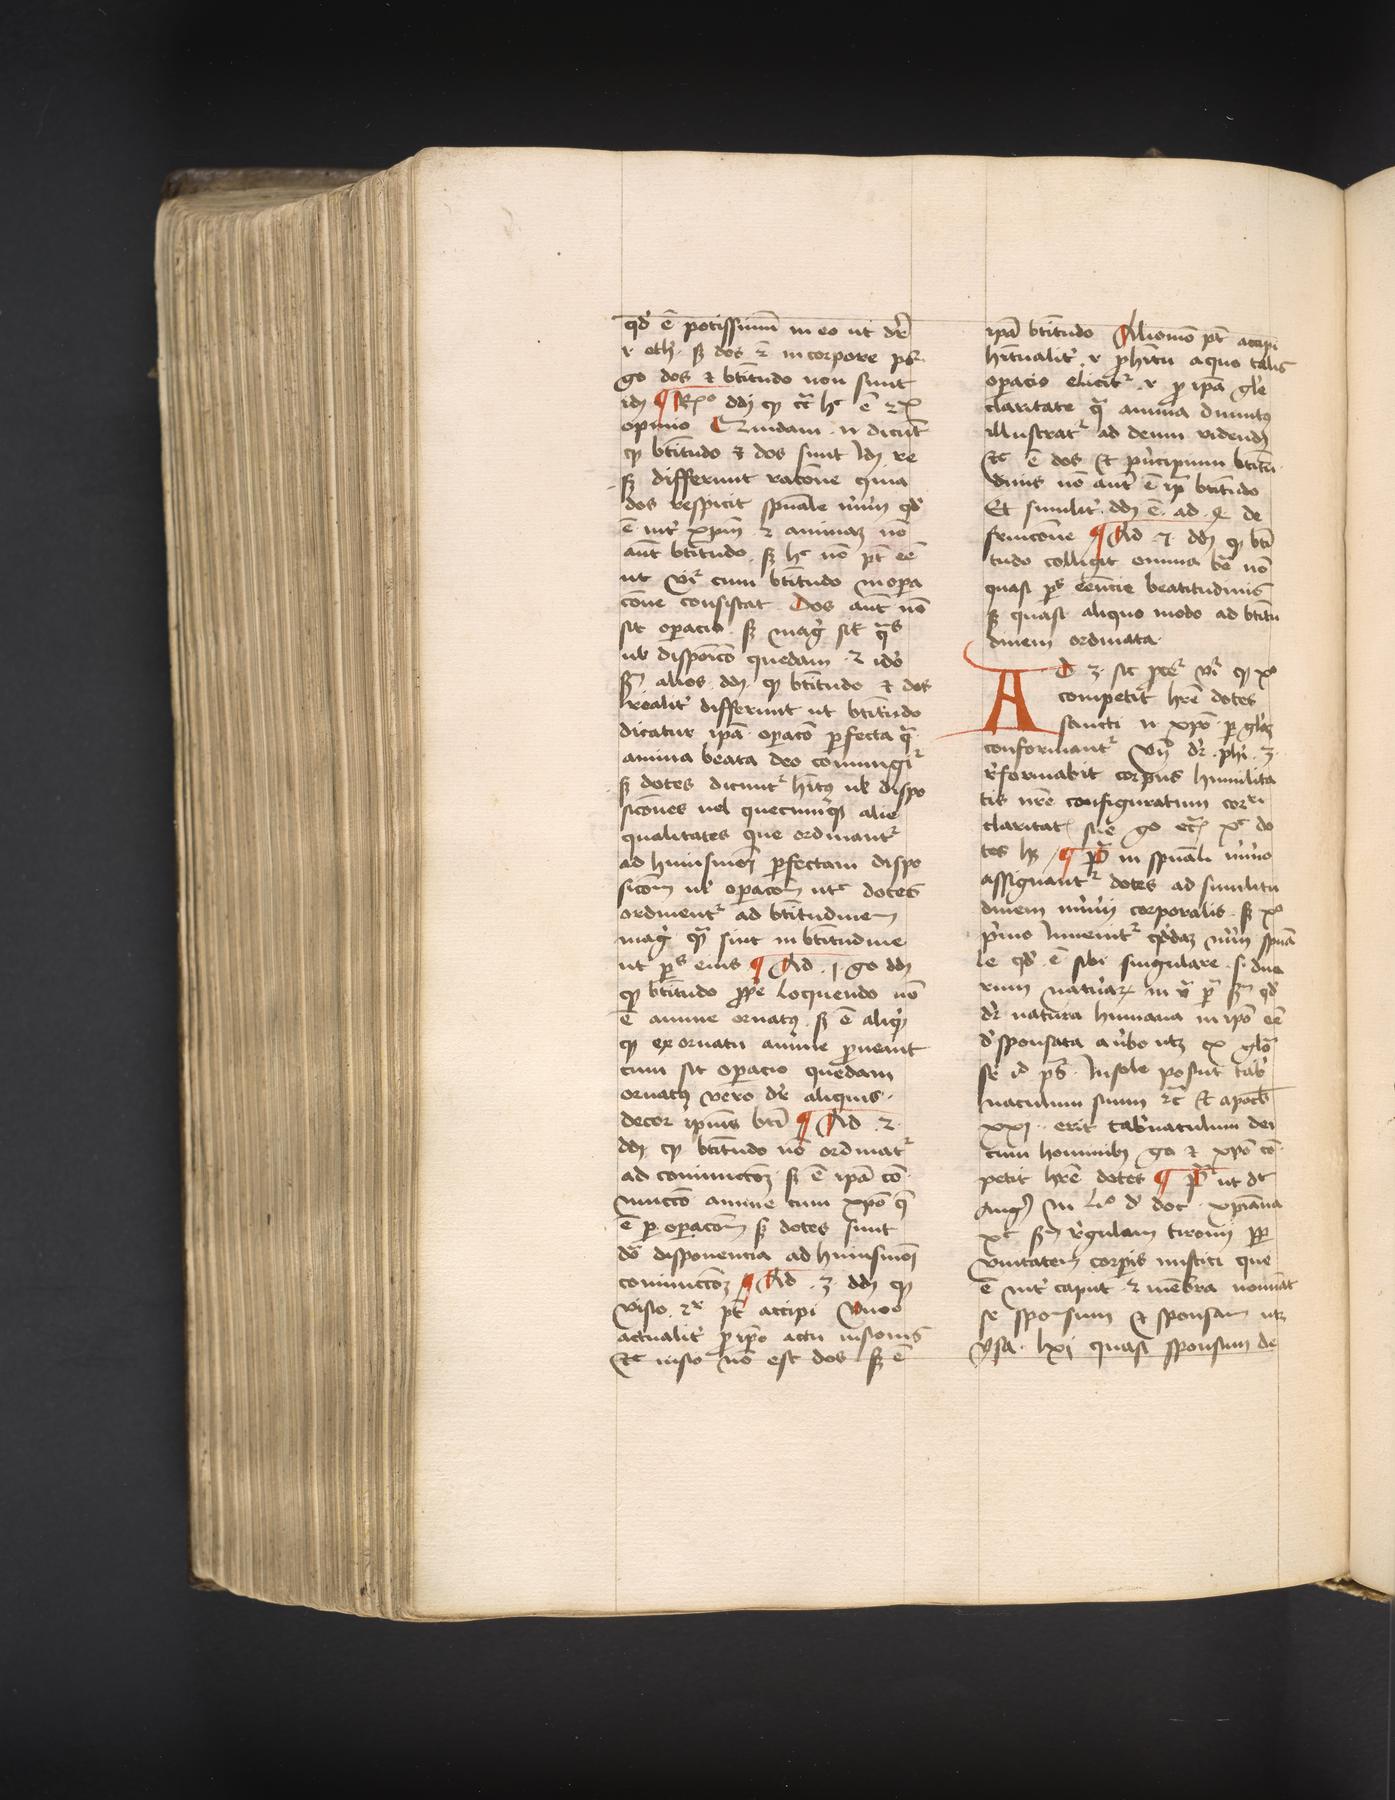 qd' ē potissimū in eo ut dr̄
i eth'. sꝫ dos ē in corpore pꝰ.
go dos et btitudo non sunt
idē ¶ Rx° ddꝫ ꝙ ccᵃ hᶜ ē 2x
opinio Quidam n dicūt
ꝙ btitudo et dos sunt idē re
sꝫ differunt racōne quia
dos respicit spūale mr̄im qd'
ē int' xpm̄ et animaꝫ nō
aūt btitudo. sꝫ hᶜ nō pt eē
ut vr̄ cum btitudo in opa
cōne consistat Dos aūt nō
sit opacio. sꝫ mag' sit q̄ˢ
ul' disposicō quedam. et idō
sm̄ alios ddꝫ ꝙ btitudo et dos
realit' differunt ut btitudo
dicatur ipā opacō pfecta qᵃ
anima beata deo coniungiᵗ
sꝫ dotes dicuntᵗ hītꝰ ul' dispo
sicōnes uel quecunqꝫ alie
qualitates que ordinantᵗ
ad huiusmōi pfectam dispo
sicōm ul' opacōm utᶜ dotes
ordinentᵗ ad btitudinem
mag' qᵃ sint in btitudine
ut pˢ eius ¶ Ad .1. go ddꝫ
ꝙ btitudo ppe loquendo nō
ē anime ornatꝰ. sꝫ ē aliqd'
ꝙ ex ornatu anime pueniat
cum sit opacio quedam
ornatꝰ vero dr̄ aliquis.
decor ipius bti ¶ Ad .2.
ddꝫ ꝙ btitudo nō ordinatᵗ
ad coniunctōꝫ sꝫ ē ipā cō
iunctō anime cum xpō q̄
ē p opacōm sꝫ dotes sunt
dō disponencia ad huiusmōi
coniunctōꝫ ¶ Ad .3. ddꝫ ꝙ
visio 2ʳ pt accipi Vno°
actualit' p ipō actu uisionis
et sic uisio nō est dos sꝫ ē
ipā btitudo Alio mō pt accipi
hītualit' i p hītu a quo talis
opacio elicitᵗ i p ipā gl'e
claritate qᵃ anima diuinitꝰ
illustratᵗ ad deum videndꝫ
et sic ē dos et pncipium btitu
dinis nō aūt ē ip̄ btitudo
Et similit' ddꝫ ē. ad .4. de
fruicōne ¶ Ad .7. ddꝫ ꝙ bti
tudo colligit omnia bo nō
quasi pˢ eēncie beatitudinis
sꝫ quasi aliquo modo ad btitu
dinem ordinata.
AD 3. sic pcedᵗ vr̄ ꝙ x°
competit hr̄e dotes
sancti n xpō p gl'iaꝫ
conformantᵗ Vn̄ dr̄ phi. 3.
r̄formabit corpus humilita
tis nr̄e configuratum corri
claritatꝭ sue go ecᵃ xᶜ do
tes hꝫ ¶ pᵃ in spūali mr̄imo
assignantᵗ dotes ad similitu
dinem mr̄imii corporalis sꝫ x°
pmo inuenitᵗ qd'daꝫ mr̄im spūa
le qd' ē sibi singulare. s. dua
rum naturaꝝ in vᵃ pᵃ sm̄ qd'
dr̄ natura humana in ipō eē
d'sponsata a v'bo utꝫ ex glō
se id pˢ. In sole posuit tab'
naculum suum 2c̄ et apocl'
xxi. erit tab'naculum dei
cum hominibꝫ go et xpō cō
petit hr̄e dotes ¶ pᵃ ut dt
Augꝰ in li° d' doc. xpiana
xᶜ sm̄ r̄gulam ticonii pp
vnitatem corpis mistici que
ē int' caput et mēbra nominat
se sponsum et sponsam utꝫ
Ysa. lxi quasi sponsum de